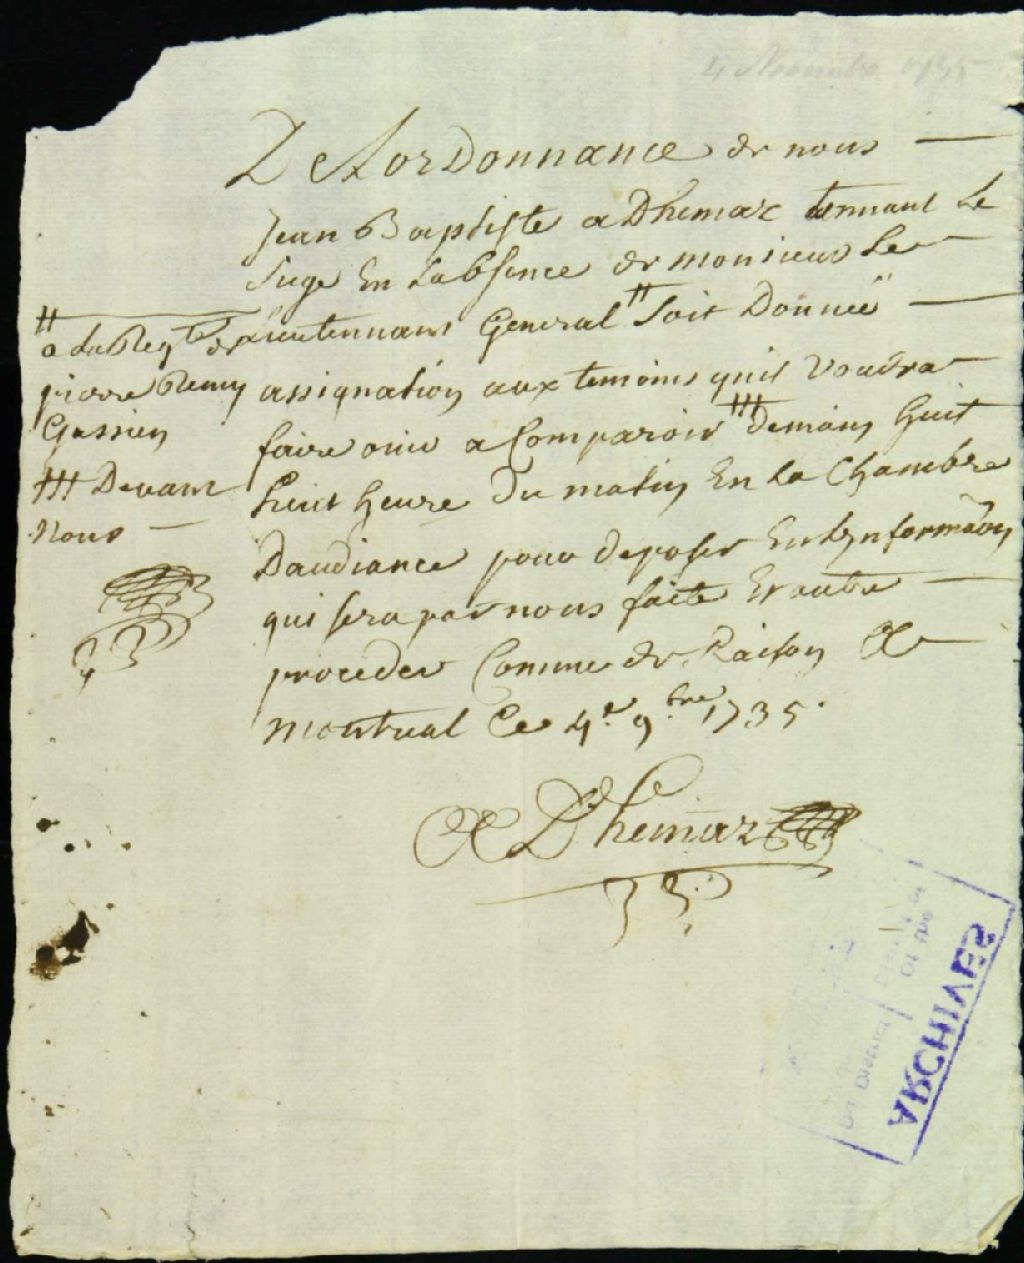 4 Novembre 1735
De Lordonnance de nous
Jean Baptiste aDhemar tennant Le
Siege En Labsence de monsieur Le
Lieutennant General # Soit Donneé
assignation aux temoins quil Voudra
faire ouir a Comparoir ⧻ Demain huit
huit heure Du matin En La Chambre
Daudiance pour deposer En Lynformaôn
qui sera par nous faite Et outre
proceder Comme de Raison A
montreal Ce 4.e 9.bre 1735.
ADhemar
# a La Reqte de
pierre Remy
Gassien
⧻ Devant
Nous
ARCHIVES
DU DISTRICT